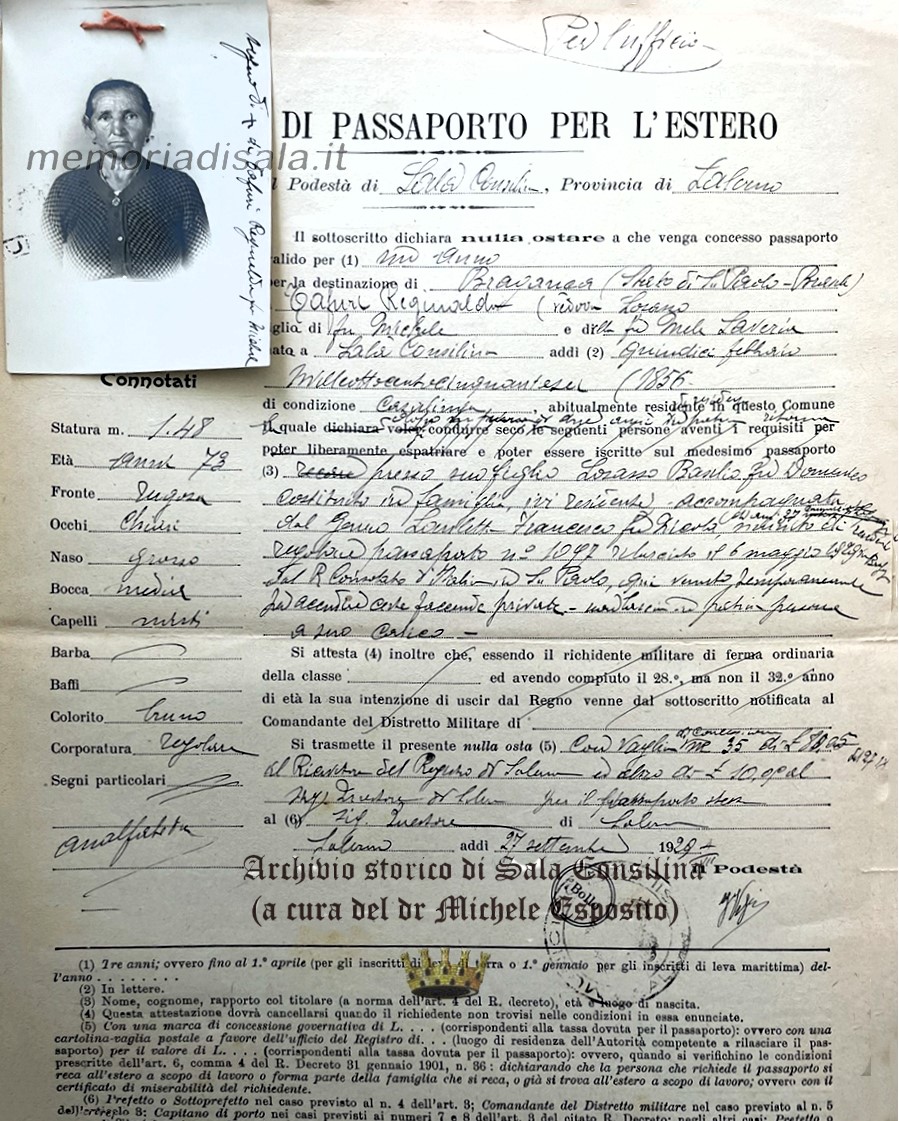 Per l'ufficio
DI PASSAPORTO PER L'ESTERO
memoriadisala.it
l Podestà di Sala Consilina, Provincia di Salerno
Il sottoscritto dichiara nulla ostare a che venga concesso passaporto
valido per (1) un anno
per la destinazione di (Stato di S. Paolo - Brasile)
Tafuri Reginalda (vedova Losasso
glia di fu Michele e di fu Mele Saveria
nato a Sala Consilina addì (2) quindici febbraio
Milleottocentocinquantasei (1856
Connotati
di condizione casalinga, abitualmente residente in questo Comune
il quale dichiara voler condurre seco le seguenti persone aventi i requisiti per
poter liberamente espatriare e poter essere iscritte sul medesimo passaporto
(3) presso suo figlio Losasso Basilio fu Domenico
costituito in famiglia, ivi residente, accompagnata
dal genero Francesco fu Nicola, munito di
regolare passaporto n° 1097 rilasciato il 6 maggio
dal R. Consolato d'Italia in S. Paolo, qui venuto temporaneamente
per accudire certe faccende private - non lascia in patria persone
a suo carico -
Statura m. 1.48
Età anni 73
Fronte rugosa
Occhi chiari
Naso grosso
Bocca media
Capelli misti
Barba
Baffi
Colorito bruno
Corporatura regolare
Segni particolari
analfabeta
Si attesta (4) inoltre che, essendo il richidente militare di ferma ordinaria
della classe ed avendo compiuto il 28.º, ma non il 32.º anno
di età la sua intenzione di uscir dal Regno venne dal sottoscritto notificata al
Comandante del Distretto Militare di
Si trasmette il presente nulla osta (5) con vaglia n° 35 di £
al Ricevitore del Registro di Salerno ed altro di £ 10,90 al
Sig. Questore di Salerno per il passaporto stesso
al (6) Sig. Questore di Salerno
Salerno addì 27 settembre 1929
Il Podestà
Bollo
Archivio storico di Sala Consilina
(a cura del dr Michele Esposito)
(1) Tre anni; ovvero fino al 1.º aprile (per gli inscritti di leva di terra o 1.º gennaio per gli inscritti di leva marittima) del-
l'anno . . . . . . . .
(2) In lettere.
(3) Nome, cognome, rapporto col titolare (a norma dell'art. 4 del R. decreto), età e luogo di nascita.
(4) Questa attestazione dovrà cancellarsi quando il richiedente non trovisi nelle condizioni in essa enunciate.
(5) Con una marca di concessione governativa di L. . . . (corrispondenti alla tassa dovuta per il passaporto): ovvero con una
cartolina-vaglia postale a favore dell'ufficio del Registro di. . . (luogo di residenza dell'Autorità competente a rilasciare il pas-
saporto) per il valore di L. . . . (corrispondenti alla tassa dovuta per il passaporto): ovvero, quando si verifichino le condizioni
prescritte dell'art. 6, comma 4 del R. Decreto 31 gennaio 1901, n. 36 : dichiarando che la persona che richiede il passaporto si
reca all'estero a scopo di lavoro o forma parte della famiglia che si reca, o già si trova all'estero a scopo di lavoro; ovvero con il
certificato di miserabilità del richiedente.
(6) Prefetto o Sottoprefetto nel caso previsto al n. 4 dell'art. 3; Comandante del Distretto militare nel caso previsto al n. 5
dell'articolo 3; Capitano di porto nei casi previsti ai numeri 7 e 8 dell'art. 3 del citato R. Decreto; negli altri casi: Prefetto o